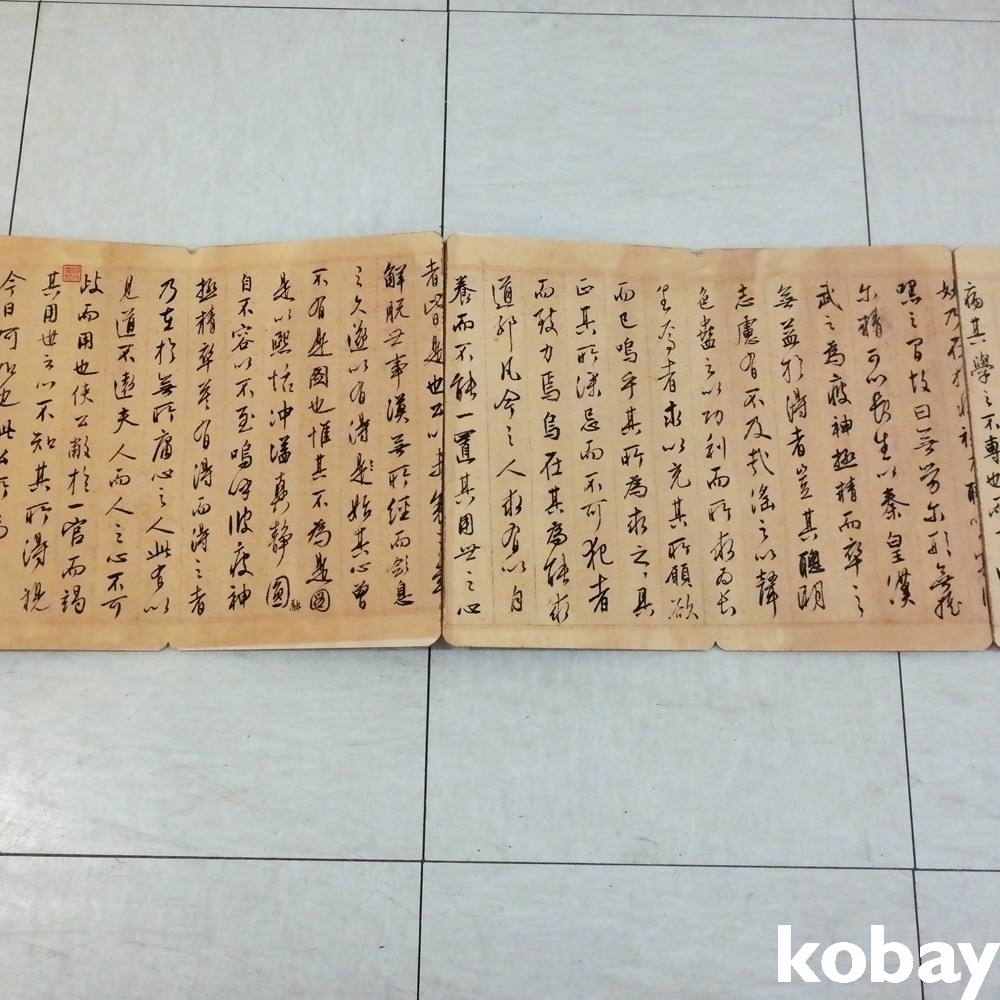 病其學之不專也而
妙乃在
嘿之間故曰無勞爾形無搖
爾精可以長生以秦皇漢
武之為疲神極精而卒之
無益於得者豈其聰明
志慮有不及哉淫之以聲
色蠱之以功利而所求為長
生者求以充其所願欲
而已嗚乎其所為求之之具
正其所深忌而不可犯者
而致力焉烏在其為能求
道邪凡今之人求有以自
養而不能一置其用世之心
者皆是也公以
解脫世事漠無所經而斂息
之久遂以有得是始其心曾
不有是圖也惟其不為是圖
是以熙恬沖瀜真靜圓融
自不容以不至嗚呼彼疲神
極精卒莫有得而得之者
乃在於無所庸心之人此有以
見道不遠夫人而人之心不可
歧而用也使公敝於一官而竭
其用世之心不知其所得視
今日何如也此公所
kobay